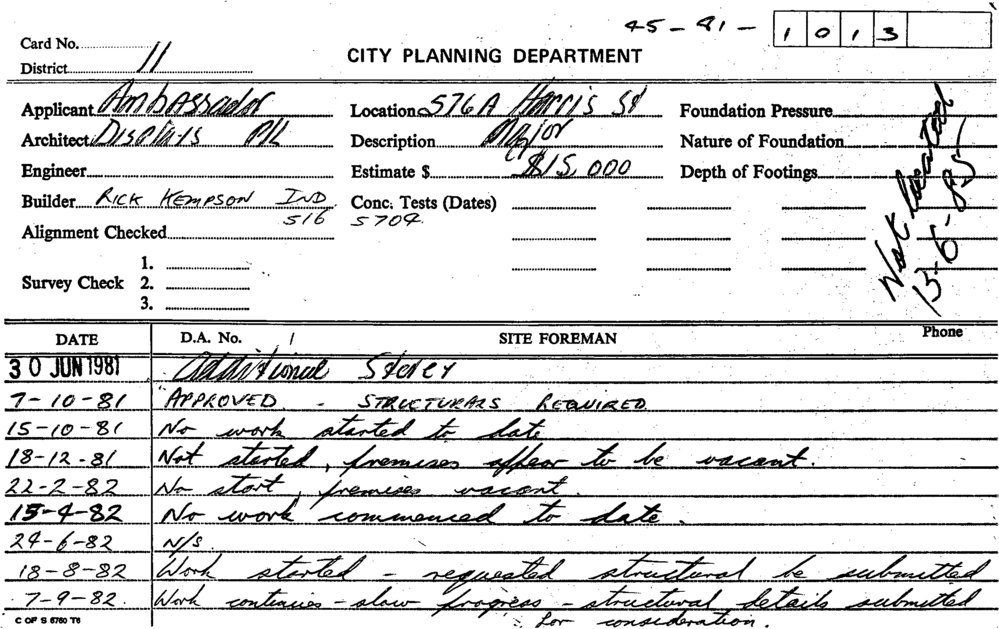 45-81-1013
Card No.
District 11
CITY PLANNING DEPARTMENT
Applicant Ambassador
Location 576A Harris St
Foundation Pressure
Architect Displays P/L
Description Major
Nature of Foundation
Engineer
Estimate $ $15,000
Depth of Footings
Builder RICK KEMPSON IND
Conc. Tests (Dates)
516 5704
Alignment Checked
Survey Check 1.
2.
3.
Not
13-6-85
DATE D.A. No. SITE FOREMAN Phone
30 JUN 1981 Additional Storey
7-10-81 APPROVED - STRUCTURALS REQUIRED
15-10-81 No work started to date
18-12-81 Not started, premises appear to be vacant.
22-2-82 No start, premises vacant.
15-4-82 No work commenced to date.
24-6-82 N/S.
18-8-82 Work started - requested structural be submitted
7-9-82. Work continues - slow progress - structural details submitted
for consideration.
C OF S 6760 T6